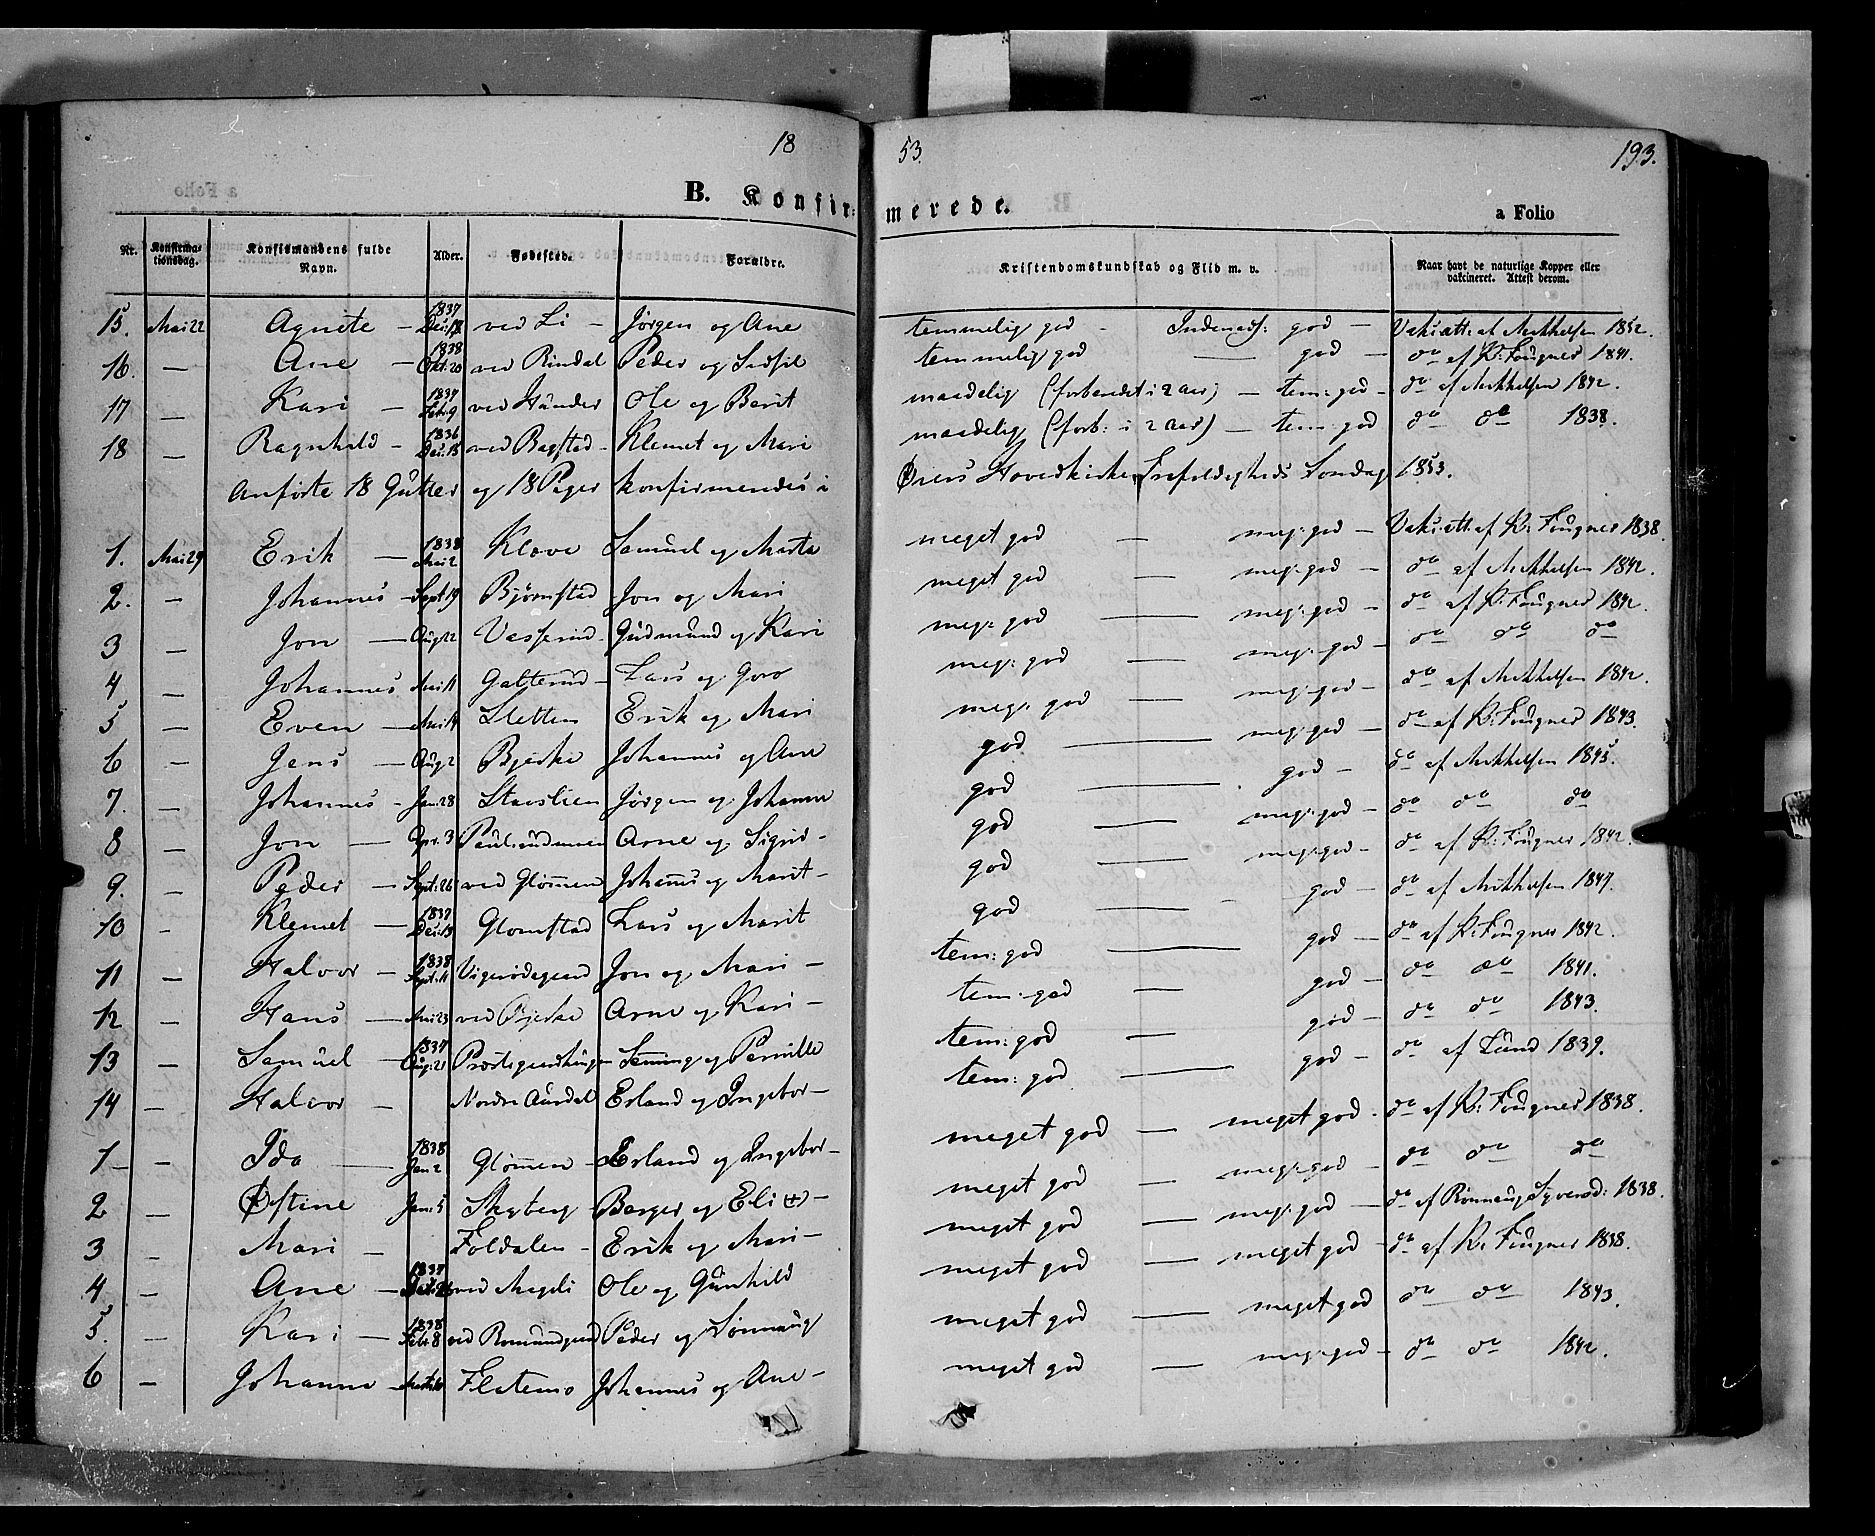 18 53. 193.
B. Konfir- merede. a Folio
Nr. Konfirmationsdag. Konfirmandens fulde Navn. Alder. Fødested. Forældre. Kristendomskundskab og Flid m. v. Naar havt de naturlige Kopper eller vakcineret. Attest derom.
15. Mai 22 Agnete — 1837 ved Li — Jørgen og Ane temmelig god — god — Vaks: att: af Mikkelsen 1852.
16. — Ane — 1838 Okt: 20 ved Rindal Peder og temmelig god — god — do af K: Fougner 1841.
17 — Kari — 1837 Feb: 9 ved Hunder Ole og Berit maadelig (forberedet i 2 Aar) — tem: god — do af Mikkelsen 1842.
18 — Ragnhild — 1836 Dec: 18 ved Bagstad — Klemet og Mari maadelig (forb: i 2 Aar) — tem: god do do 1838.
Anførte 18 Gutter og 18 Piger konfirmeredes i Øiers Hovedkirke Trefoldigheds Søndag 1853.
1. Mai 29 Erik — 1838 Mai 2 Klove Samuel og Marta meget god — meg: god — Vaks: att: af K: Fougner 1838.
2. — Johannes — Sept: 19 Bjørnstad Jon og Mari meget god — meg: god — do af Mikkelsen 1842.
3 — Jon — Aug: 22 Gudmund og Kari meg: god — meg: god — do af K: Fougner 1842.
4 — Johannes Mai 11 Galterud — Lars og Goro meg: god — meg: god — do do do
5 — Even — Mai 14 Sletten Erik og Mari meg: god — meg: god — do af Mikkelsen 1842.
6 — Jens — Aug: 2 Bjerke Johannes og Ane god — meg: god — do af K: Fougner 1843.
7. — Johannes — Jan: 28 Jørgen og Johanne god — god — do af Mikkelsen 1845.
8 — Jon — Apr: 3 Arne og Sigrid — god — meg: god — do do do
9. — Peder — Sept: 26 ved Glømmen Johannes og Marit — god — meg: god — do af K: Fougner 1842.
10 — Klemet — 1837 Dec: 13 Glomstad Lars og Marit god — god — do af Mikkelsen 1847.
11 — Halvor — 1838 Sept: 11 Jon og Mari — tem: god — god — do af K: Fougner 1842.
12 — Hans — Mai 23 ved Bjerke Arne og Kari — tem: god — god — do do 1841.
13 — Samuel — 1837 Aug: 21 og Pernille tem: god — god — do do 1843.
14 — Halvor — Nordre Aurdal Erland og Ingebor — tem: god — god — do af Lund 1839.
1 — — Ida — 1838 Jan: 2 Glømmen — Erland og Ingebor — meget god — meget god — do af K: Fougner 1838.
2 — Østine Jan: 5 Skyberg Berger og Eli — meget god — meg: god — do do do
3 — Mari — Foldalen — Erik og Mari — meget god — meg: god — do af Rønnaug 1838.
4 — Ane — 1837 ved Mageli Ole og Gunhild meget god — meget god — do af K: Fougner 1838.
5. — Kari — 1838 Feb: 8 ved Romundgard Peder og Rønnaug meget god — meget god do do 1843.
6 — Johanne — Flatemo Johannes og Ane — meget god — meg: god — do do 1842.